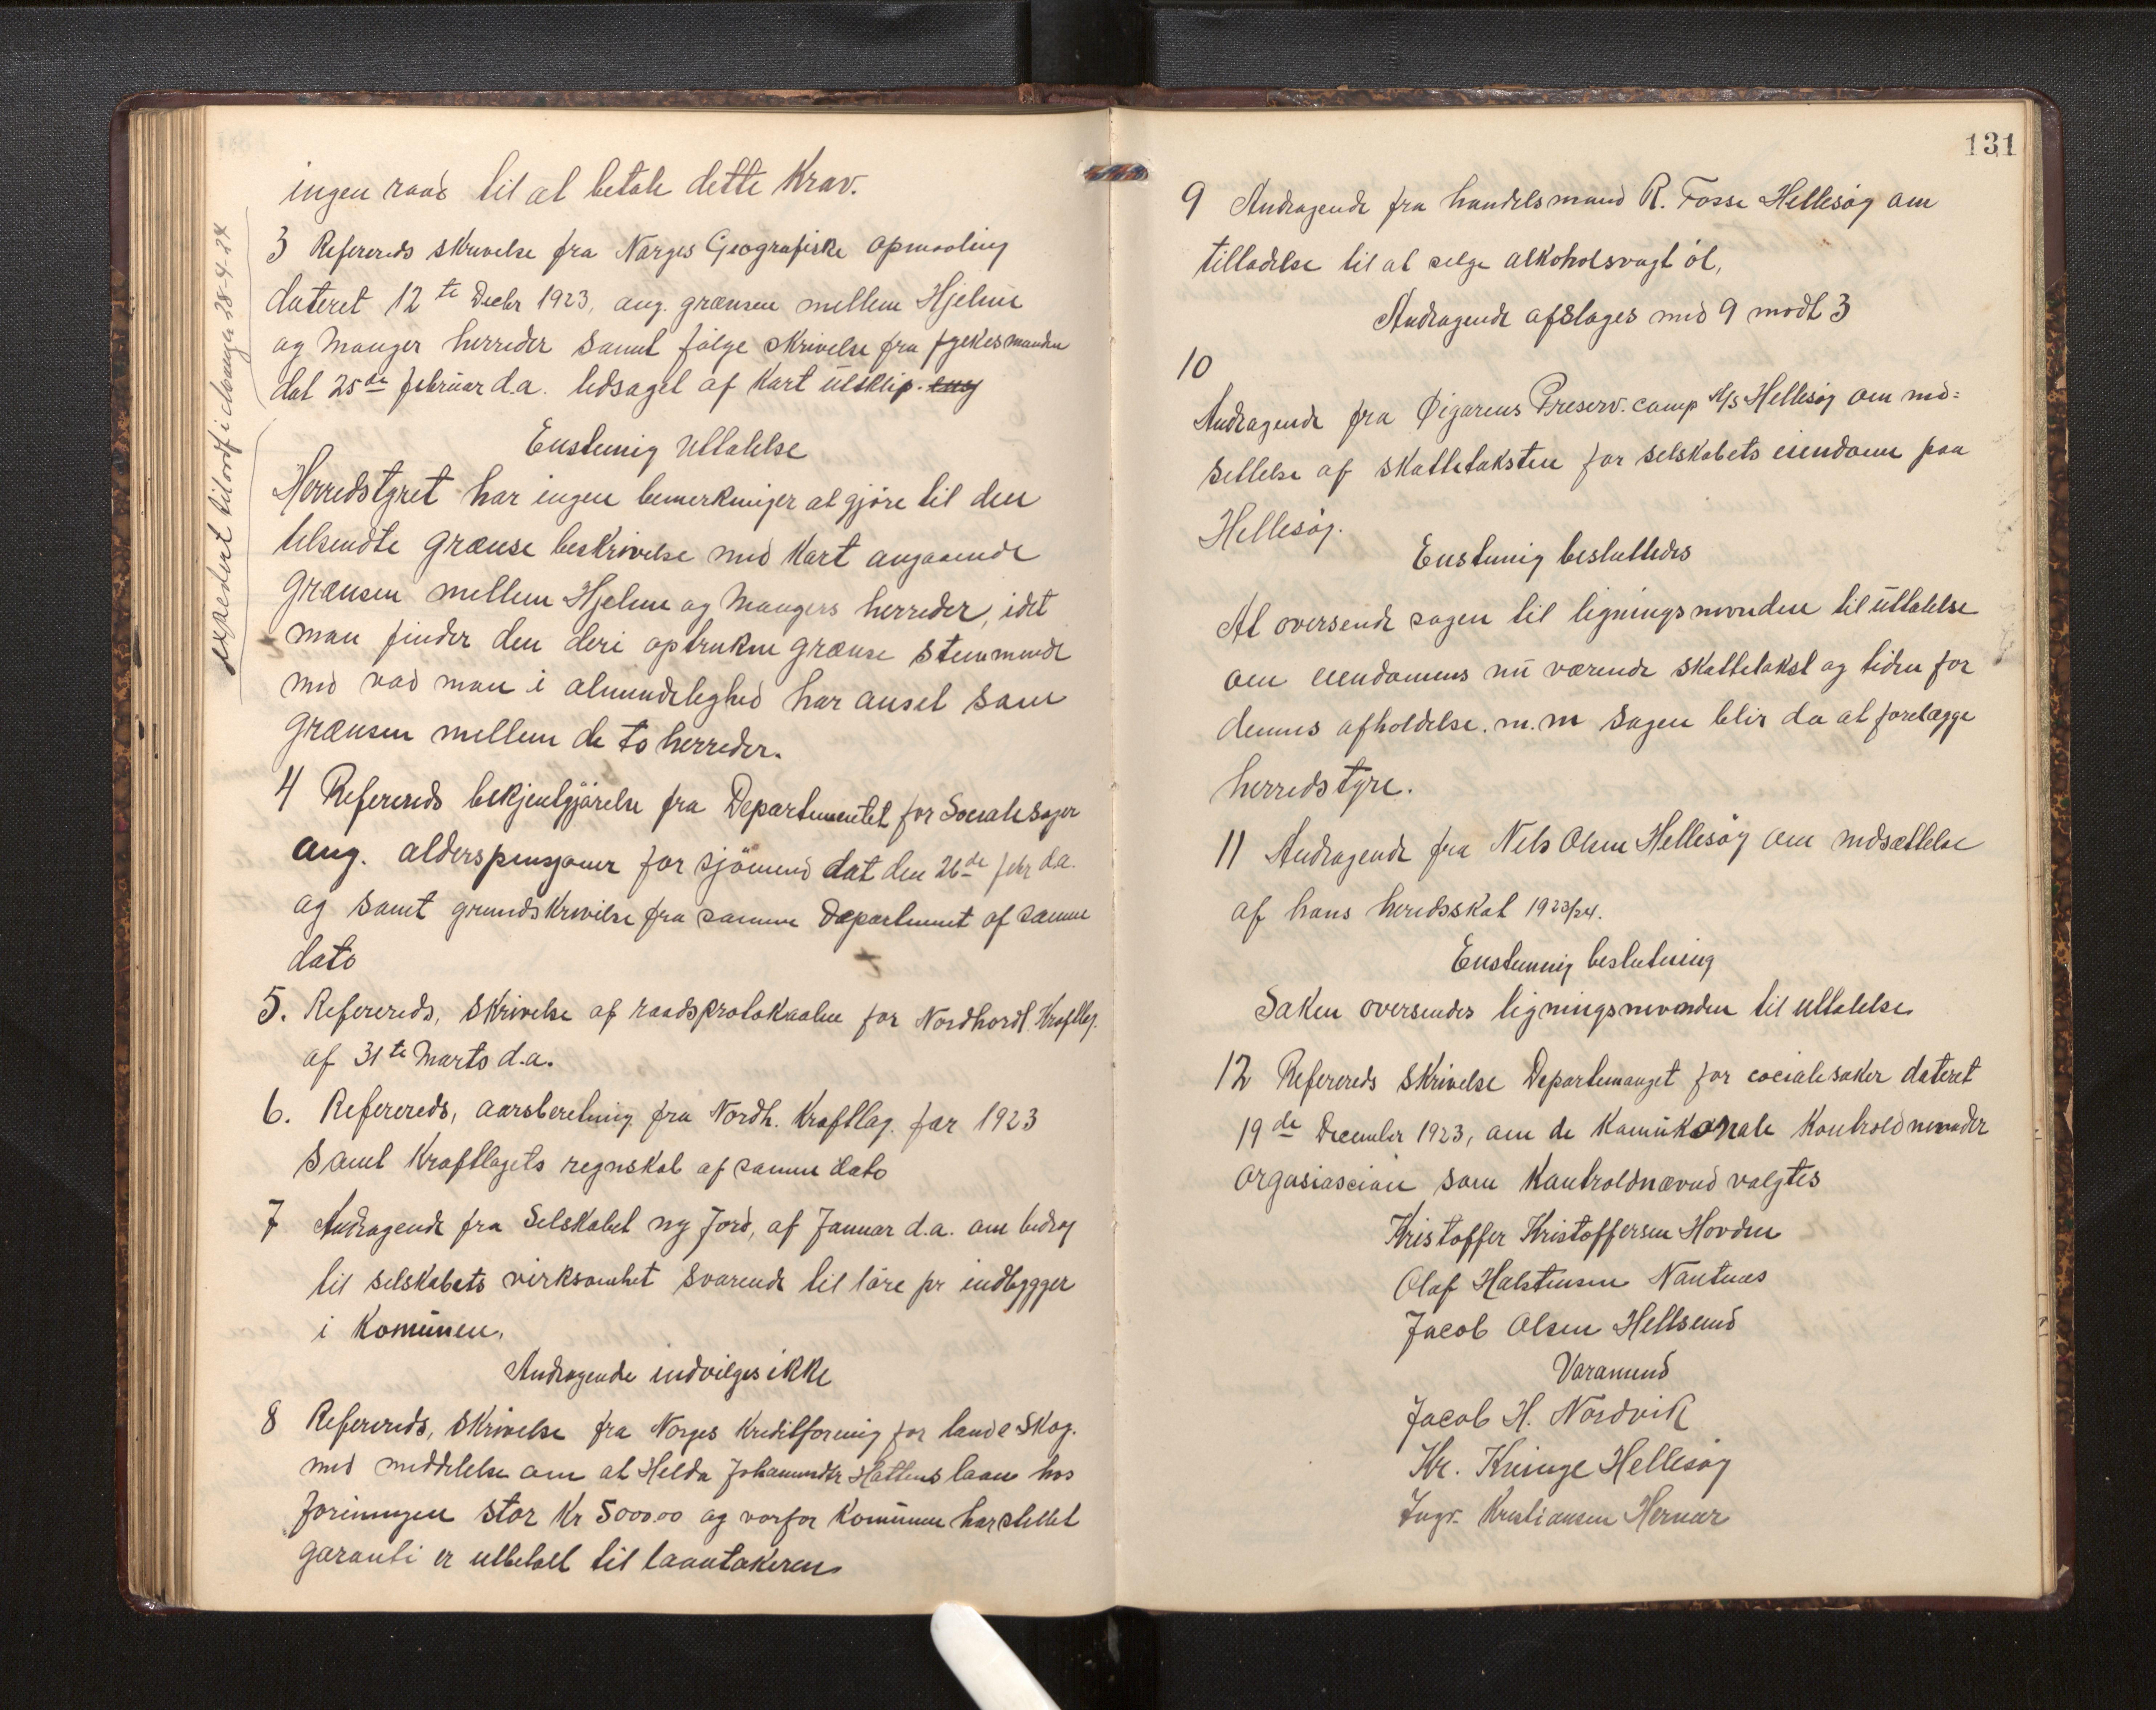 ingen raad til at betale dette Krav.
3 Refereres skrivelse fra Norges Geografiske opmaaling
dateret 12te Decbr 1923, ang. grænsen mellem Hjelme
og Manger herreder samt følge skrivelse fra fylkesmanden
dat 25de februar d.a. ledsaget af Kart utsklip.
Enstemig Uttalelse
Herredstyret har ingen bemerkninger at gjøre til den
tilsendte grænse beskrivelse med Kart angaaende
Grænsen mellem Hjelme og Mangers herreder, idet
man finder den deri optrukne grænse stemmende
med vad man i almindelighed har anset som
grænsen mellem de to herreder.
expedert til ordf i Manger 28-4-24
4 Refereres bekjentgjørelse fra Departementet for Sociale sager
ang. alderspensjoner for sjømend dat den 26de febr d.a.
og samt grundskrivelse fra samme Departement af samme
dato
5. Refereres, skrivelse af raadsprotokaalen for Nordhordl. Kraftlag.
af 31te Marts d.a.
6. Refereres, aarsberetning fra Nordh. Kraftlag. for 1923
samt Kraftlagets regnskab af samme dato
7 Andragende fra Selskabet ny Jord, af Januar d.a. om bidrag
til selskabets virksomhet svarende til 1 øre pr indbygger
i Komunen.
Andragende indvilges ikke
8 Refereres, skrivelse fra Norges Kreditforening for land & Skog.
med meddelelse om at Helda Johannesdtr Hattens laan hos
foreningen stor Kr 5000.00 og vorfor Komunen har stillet
garanti er utbetalt til laantakeren
131
9 Andragende fra handelsmand R. Fosse Hellesøy om
tilladelse til at selge alkoholsvagt øl,
Andragende afslages med 9 modt 3
10
Andragende fra Øigarens Preserv. comp A/s Hellesøy om ned=
settelse af skattetaksten for selskabets eiendom paa
Hellesøy.
Enstemig besluttedes
At oversende sagen til ligningsnevnden til uttalelse
om eiendomens nu værende skattetakst og tiden for
dennes afholdelse. m.m Sagen blir da at forelægge
herredstyre.
11 Andragende fra Nels Olsen Hellesøy om nedsættelse
af hans heredsskat 1923/24.
Enstemmig beslutning
Saken oversendes ligningsnevnden til uttalelse
12 Refereres skrivelse Departemanget for sociale saker dateret
19de December 1923, om de Komukonale Kontroldnevnder
orgasiascian som Kontroldnævnd valgtes
Kristoffer Kristoffersen Hovden
Olaf Halstensen Nautnes
Jacob Olsen Hellsund
Varamend
Jacob H. Nordvik
Kr. Kringe Hellesøy
Ingv. Kristiansen Hernar